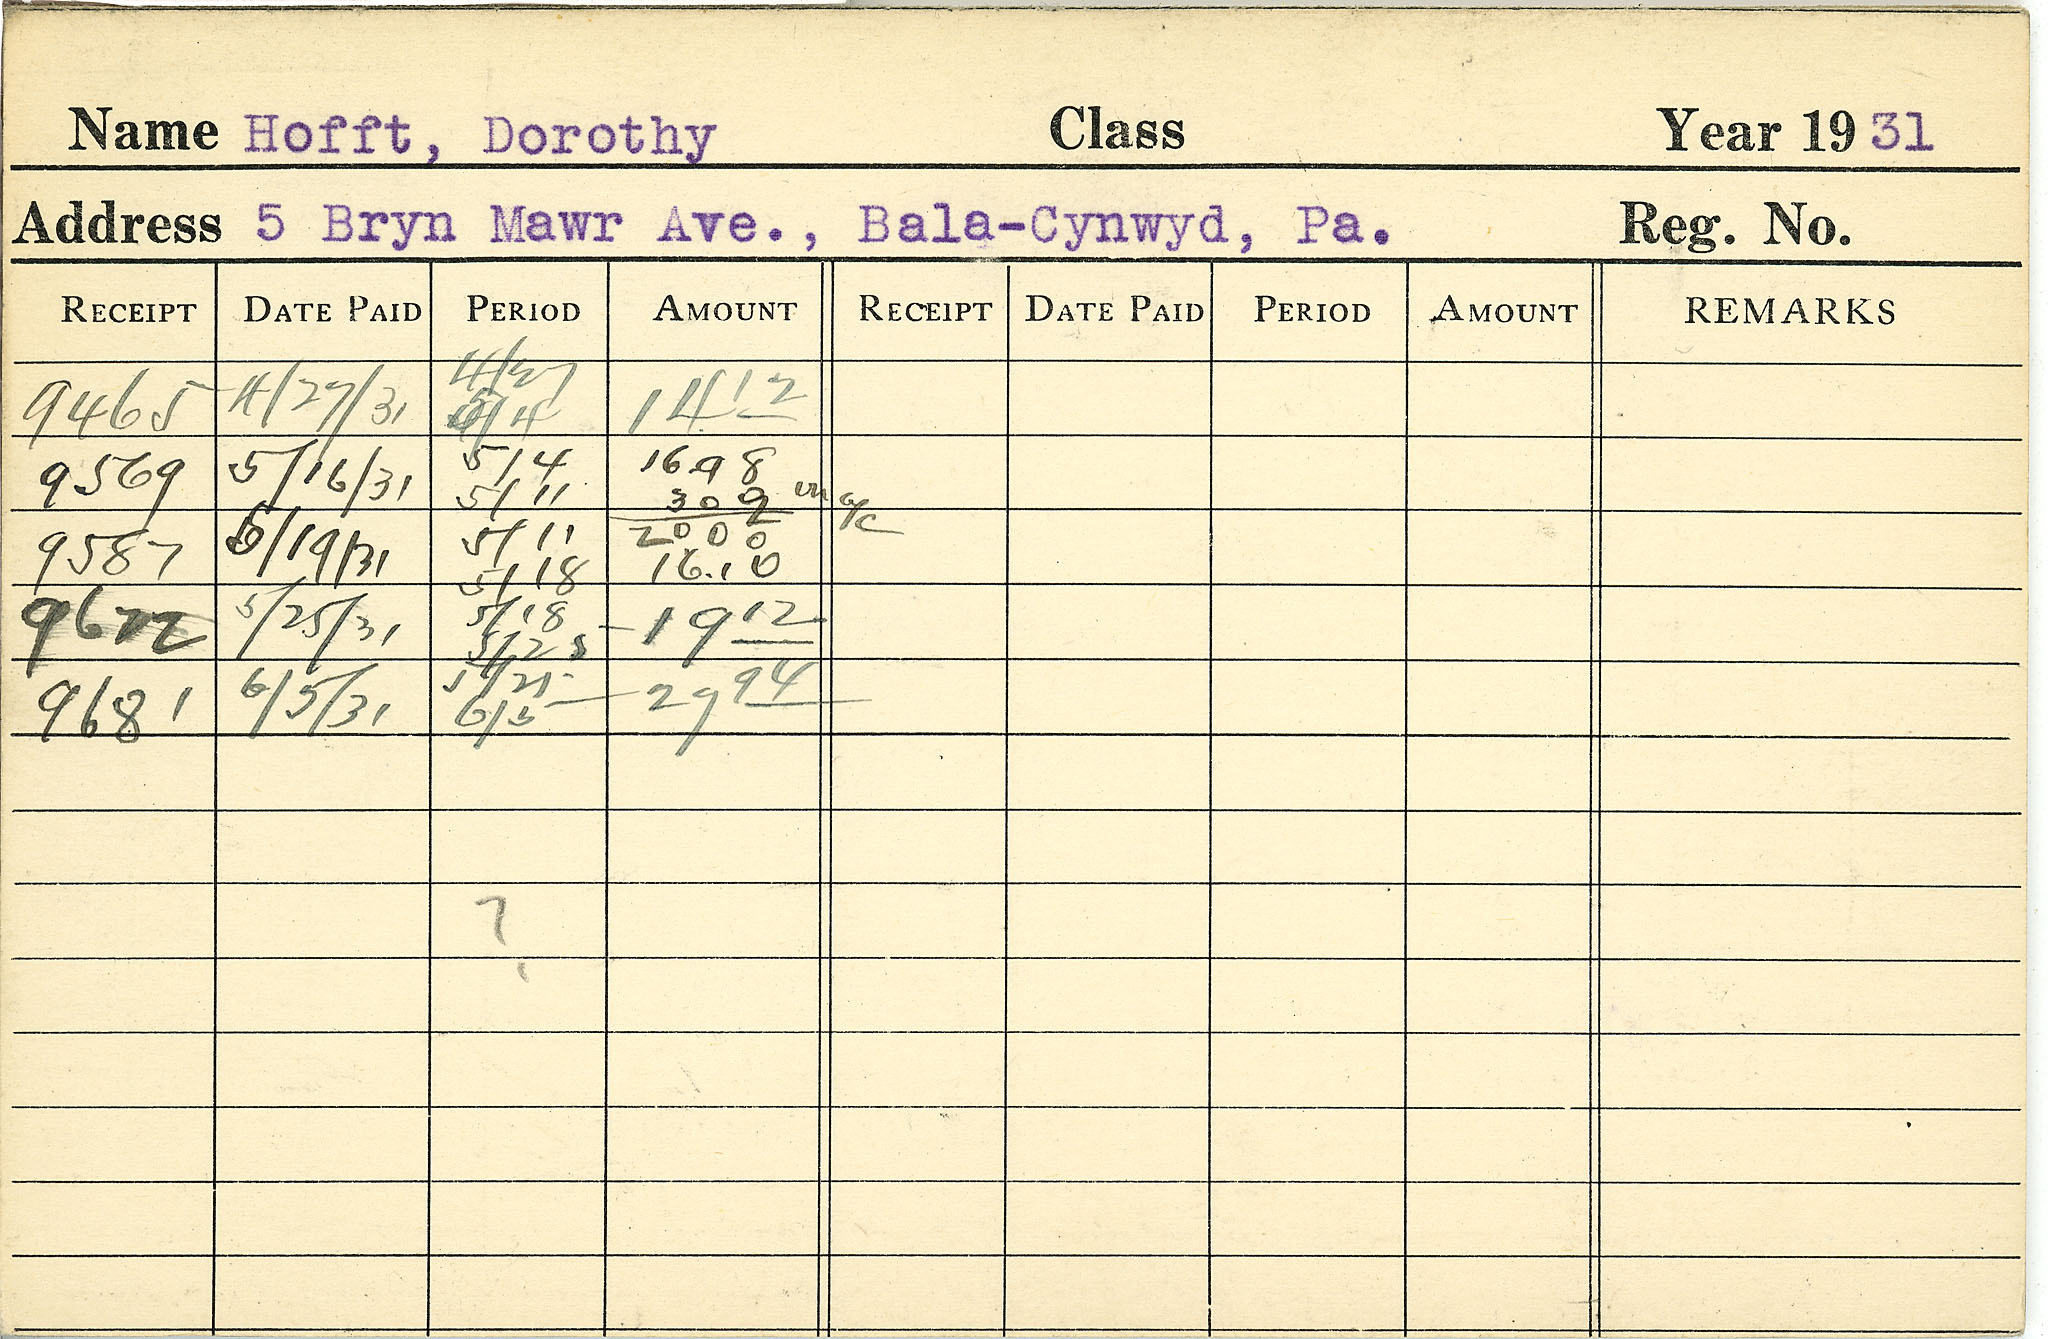 Name Hofft, Dorothy Class Year 1931
Address 5 Bryn Mawr Ave., Bala-Cynwyd, Pa. Reg. No.
RECEIPT DATE PAID PERIOD AMOUNT RECEIPT DATE PAID PERIOD AMOUNT REMARKS
4/27
9465 4/27/31 5/4 14 12
9569 5/16/31 5/4 16 98
5/11 3 02 on a/c
20 00
9587 5/19/31 5/11
5/18 16.10
9622 5/25/31 5/18 19 12
5/25
9681 6/5/31 5/25 29 94
6/5
?